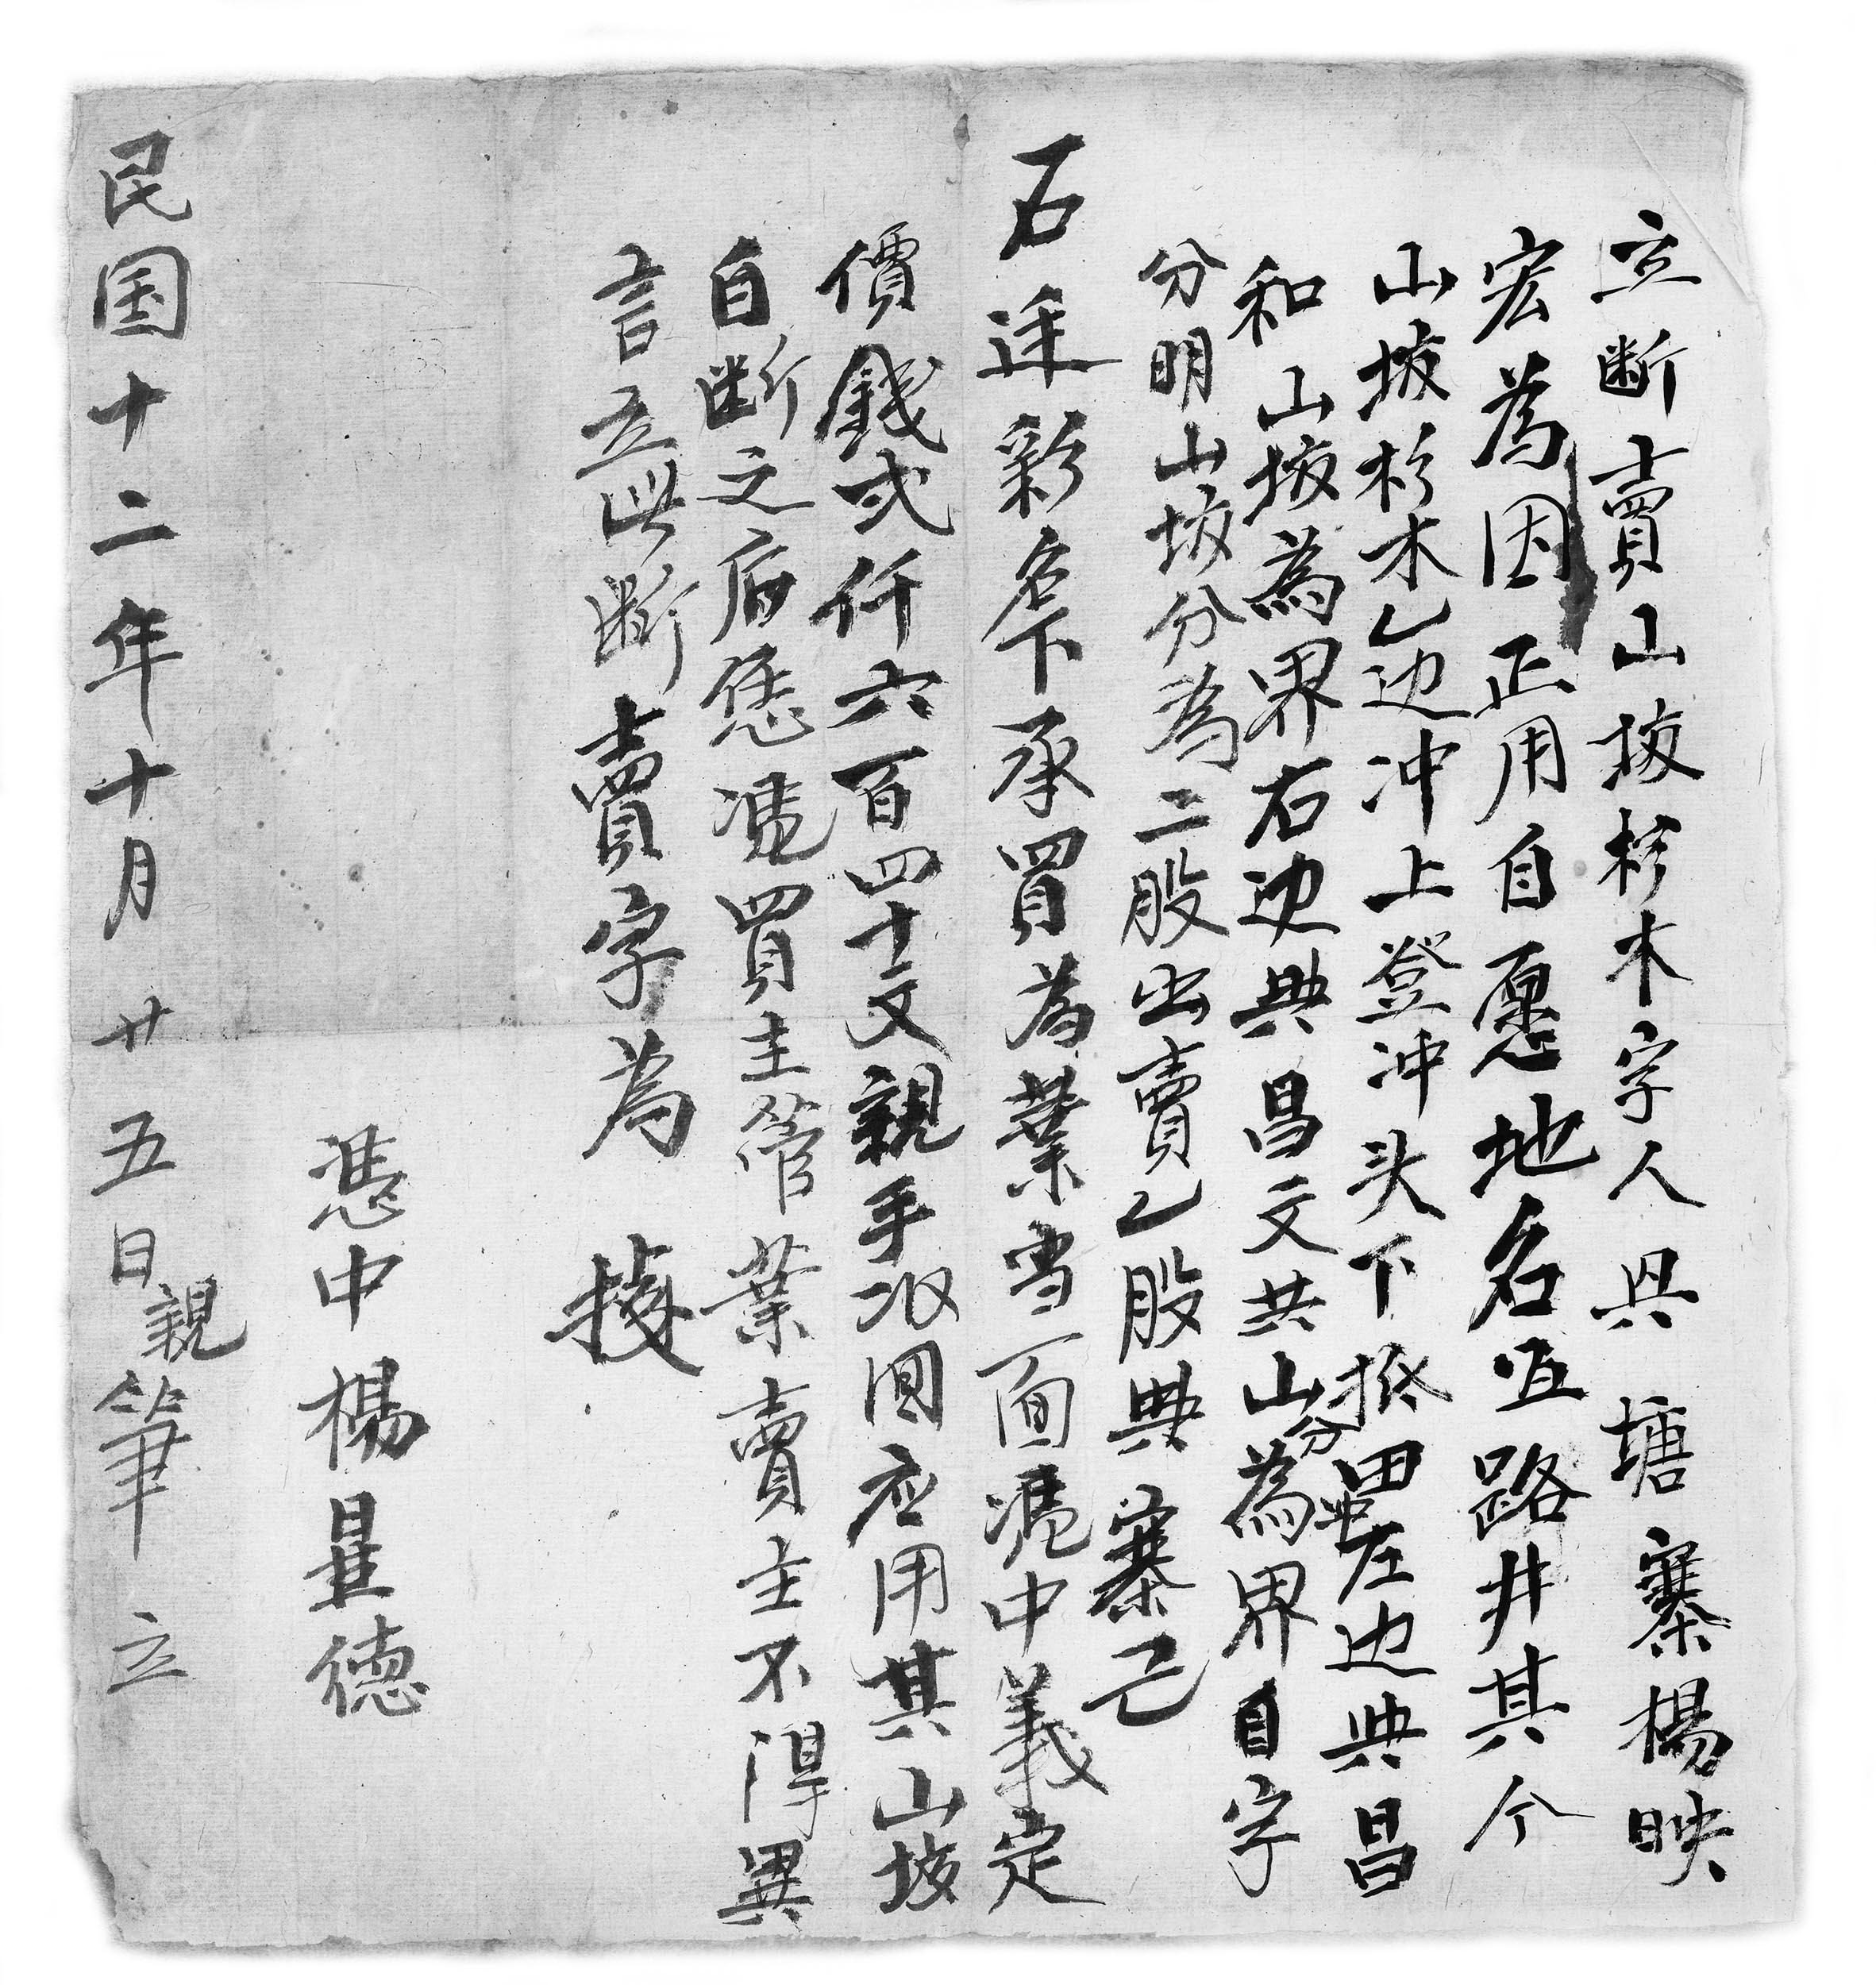 立断賣山坡杉木字人具塘寨楊映
宏為因正用自愿地名咟路井其今
山坡杉木乙边冲上登冲头下抵田坐左边典昌
和山坡為界右边典昌文共山分為界自字
分明山坡分為二股出賣乙股典寨己
石逢彩名下承買為業当面憑中義定
價錢弍仟六百四十文親手收囬应用其山坡
自断之后恁憑買主管業賣主不淂異
言立此断賣字為據
憑中楊昌德
民国十二年十月廿五日親筆立